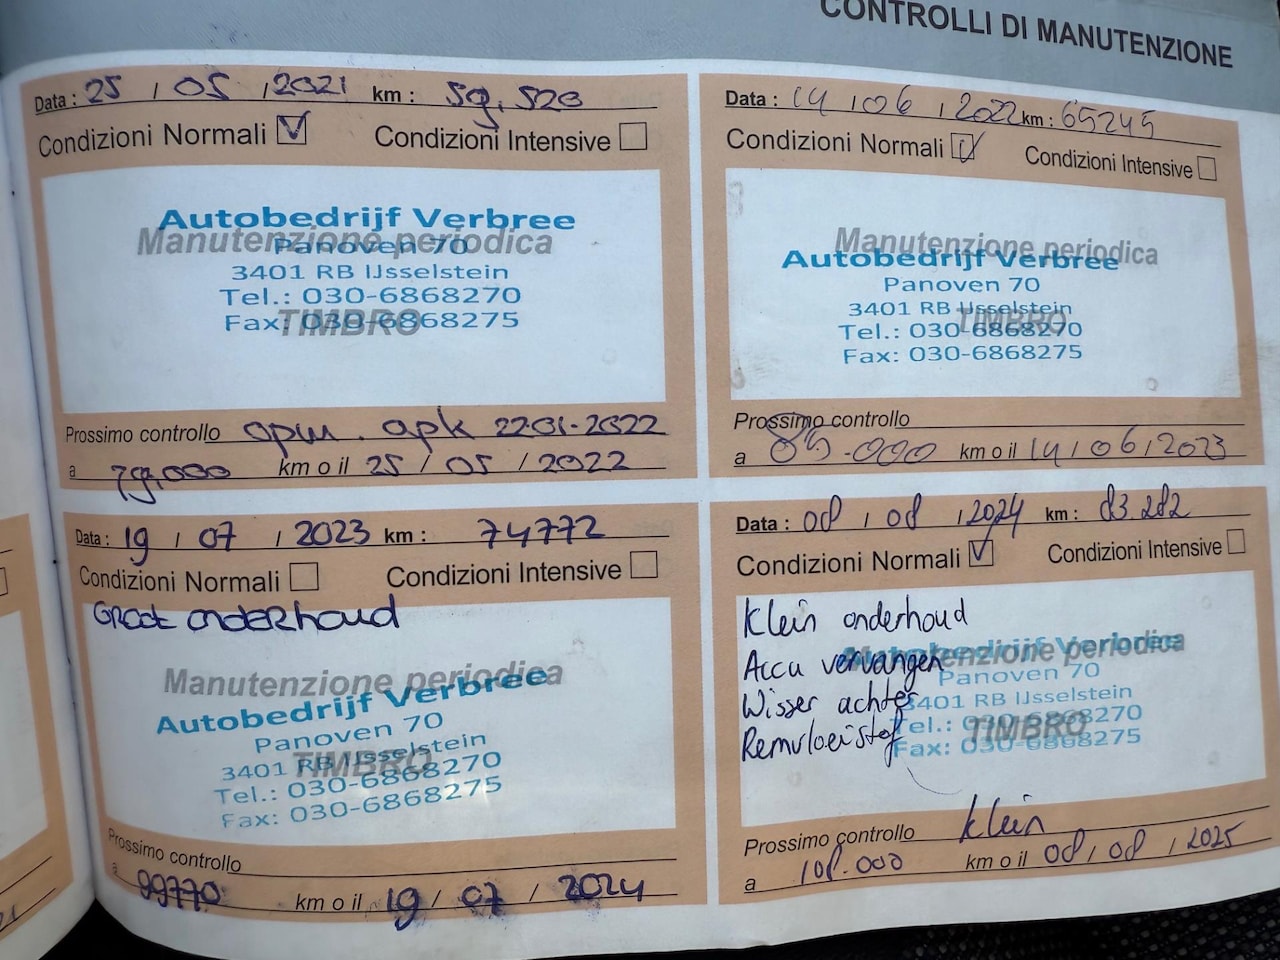 CONTROLLI DI MANUTENZIONE
Data : 25 / 05 / 2021 km : 59.520
Condizioni Normali Condizioni Intensive
Manutenzione periodica
TIMBRO
Autobedrijf Verbree
Panoven 70
3401 RB IJsselstein
Tel.: 030-6868270
Fax: 030-6868275
Prossimo controllo opm. apk 22-01-2022
a 79.000 km o il 25 / 05 / 2022
Data : 14 / 06 / 2022 km : 65245
Condizioni Normali Condizioni Intensive
Manutenzione periodica
TIMBRO
Autobedrijf Verbree
Panoven 70
3401 RB IJsselstein
Tel.: 030-6868270
Fax: 030-6868275
Prossimo controllo
a 85.000 km o il 14 / 06 / 2023
Data : 19 / 07 / 2023 km : 74772
Condizioni Normali Condizioni Intensive
Groot onderhoud
Manutenzione periodica
TIMBRO
Autobedrijf Verbree
Panoven 70
3401 RB IJsselstein
Tel.: 030-6868270
Fax: 030-6868275
Prossimo controllo
a 99770 km o il 19 / 07 / 2024
Data : 08 / 08 / 2024 km : 83.282
Condizioni Normali Condizioni Intensive
Klein onderhoud
Accu vervangen
Wisser achter
Remvloeistof
Manutenzione periodica
TIMBRO
Autobedrijf Verbree
Panoven 70
3401 RB IJsselstein
Tel.: 030-6868270
Fax: 030-6868275
Prossimo controllo klein
a 108.000 km o il 08 / 08 / 2025